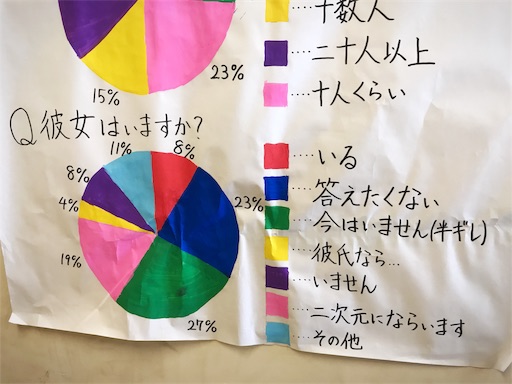 十数人
二十人以上
十人くらい
23%
15%
Q彼女はいますか?
11%
8%
8%
4%
19%
23%
27%
いる
答えたくない
今はいません(半ギレ)
彼氏なら...
いません
二次元にならいます
その他